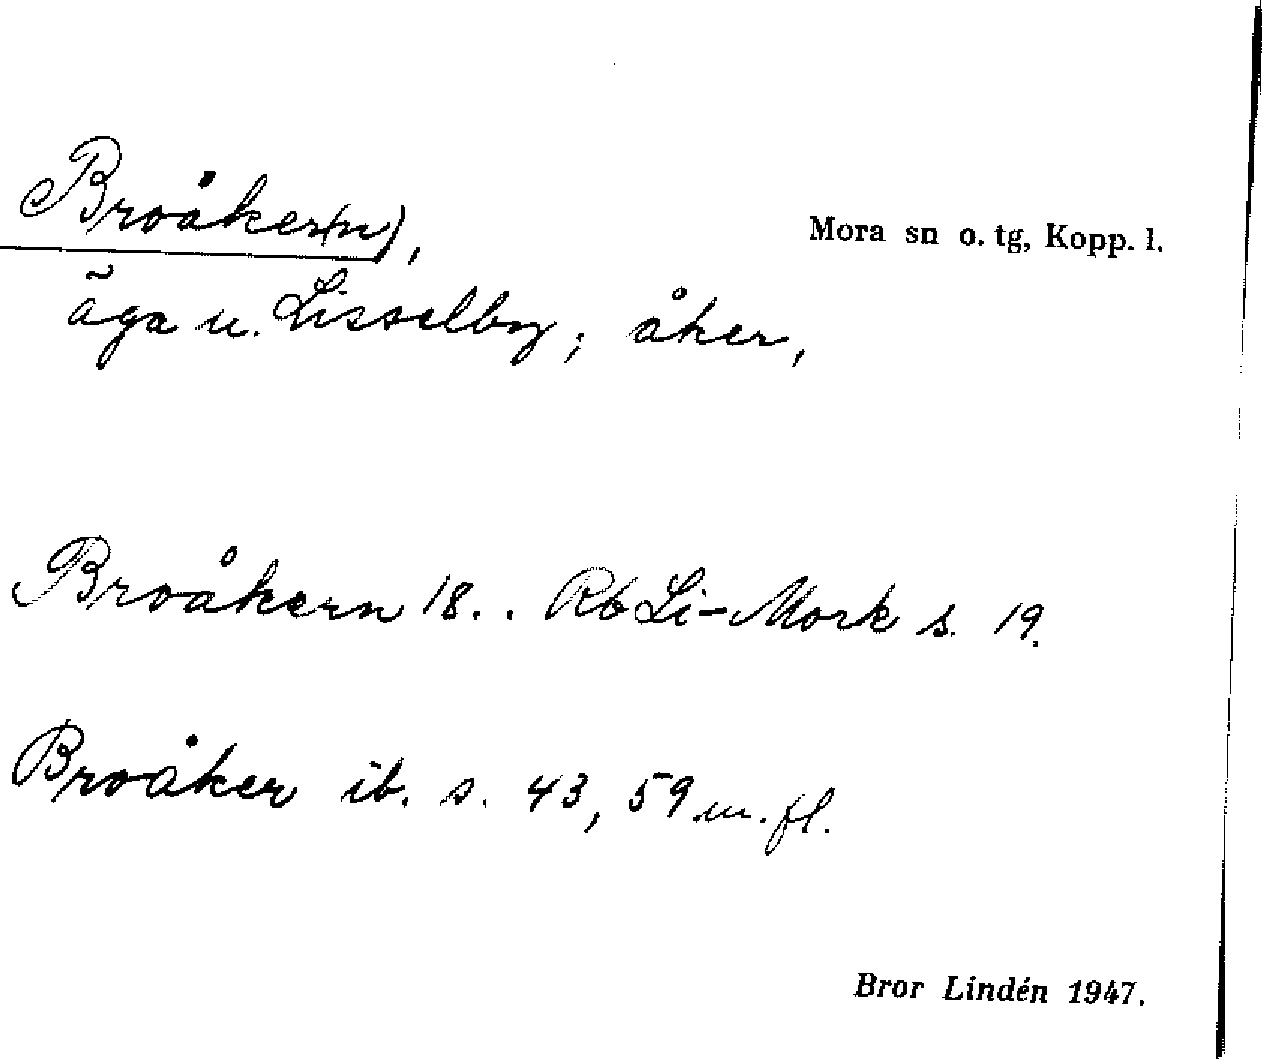 Broåker(n),
Mora sn o. tg, Kopp. l.
äga u. Lisselby; åker,
Broåkern 18.. Rb Li-Mork s. 19.
Broåker ib. s. 43, 59 m. fl.
Bror Lindén 1947.